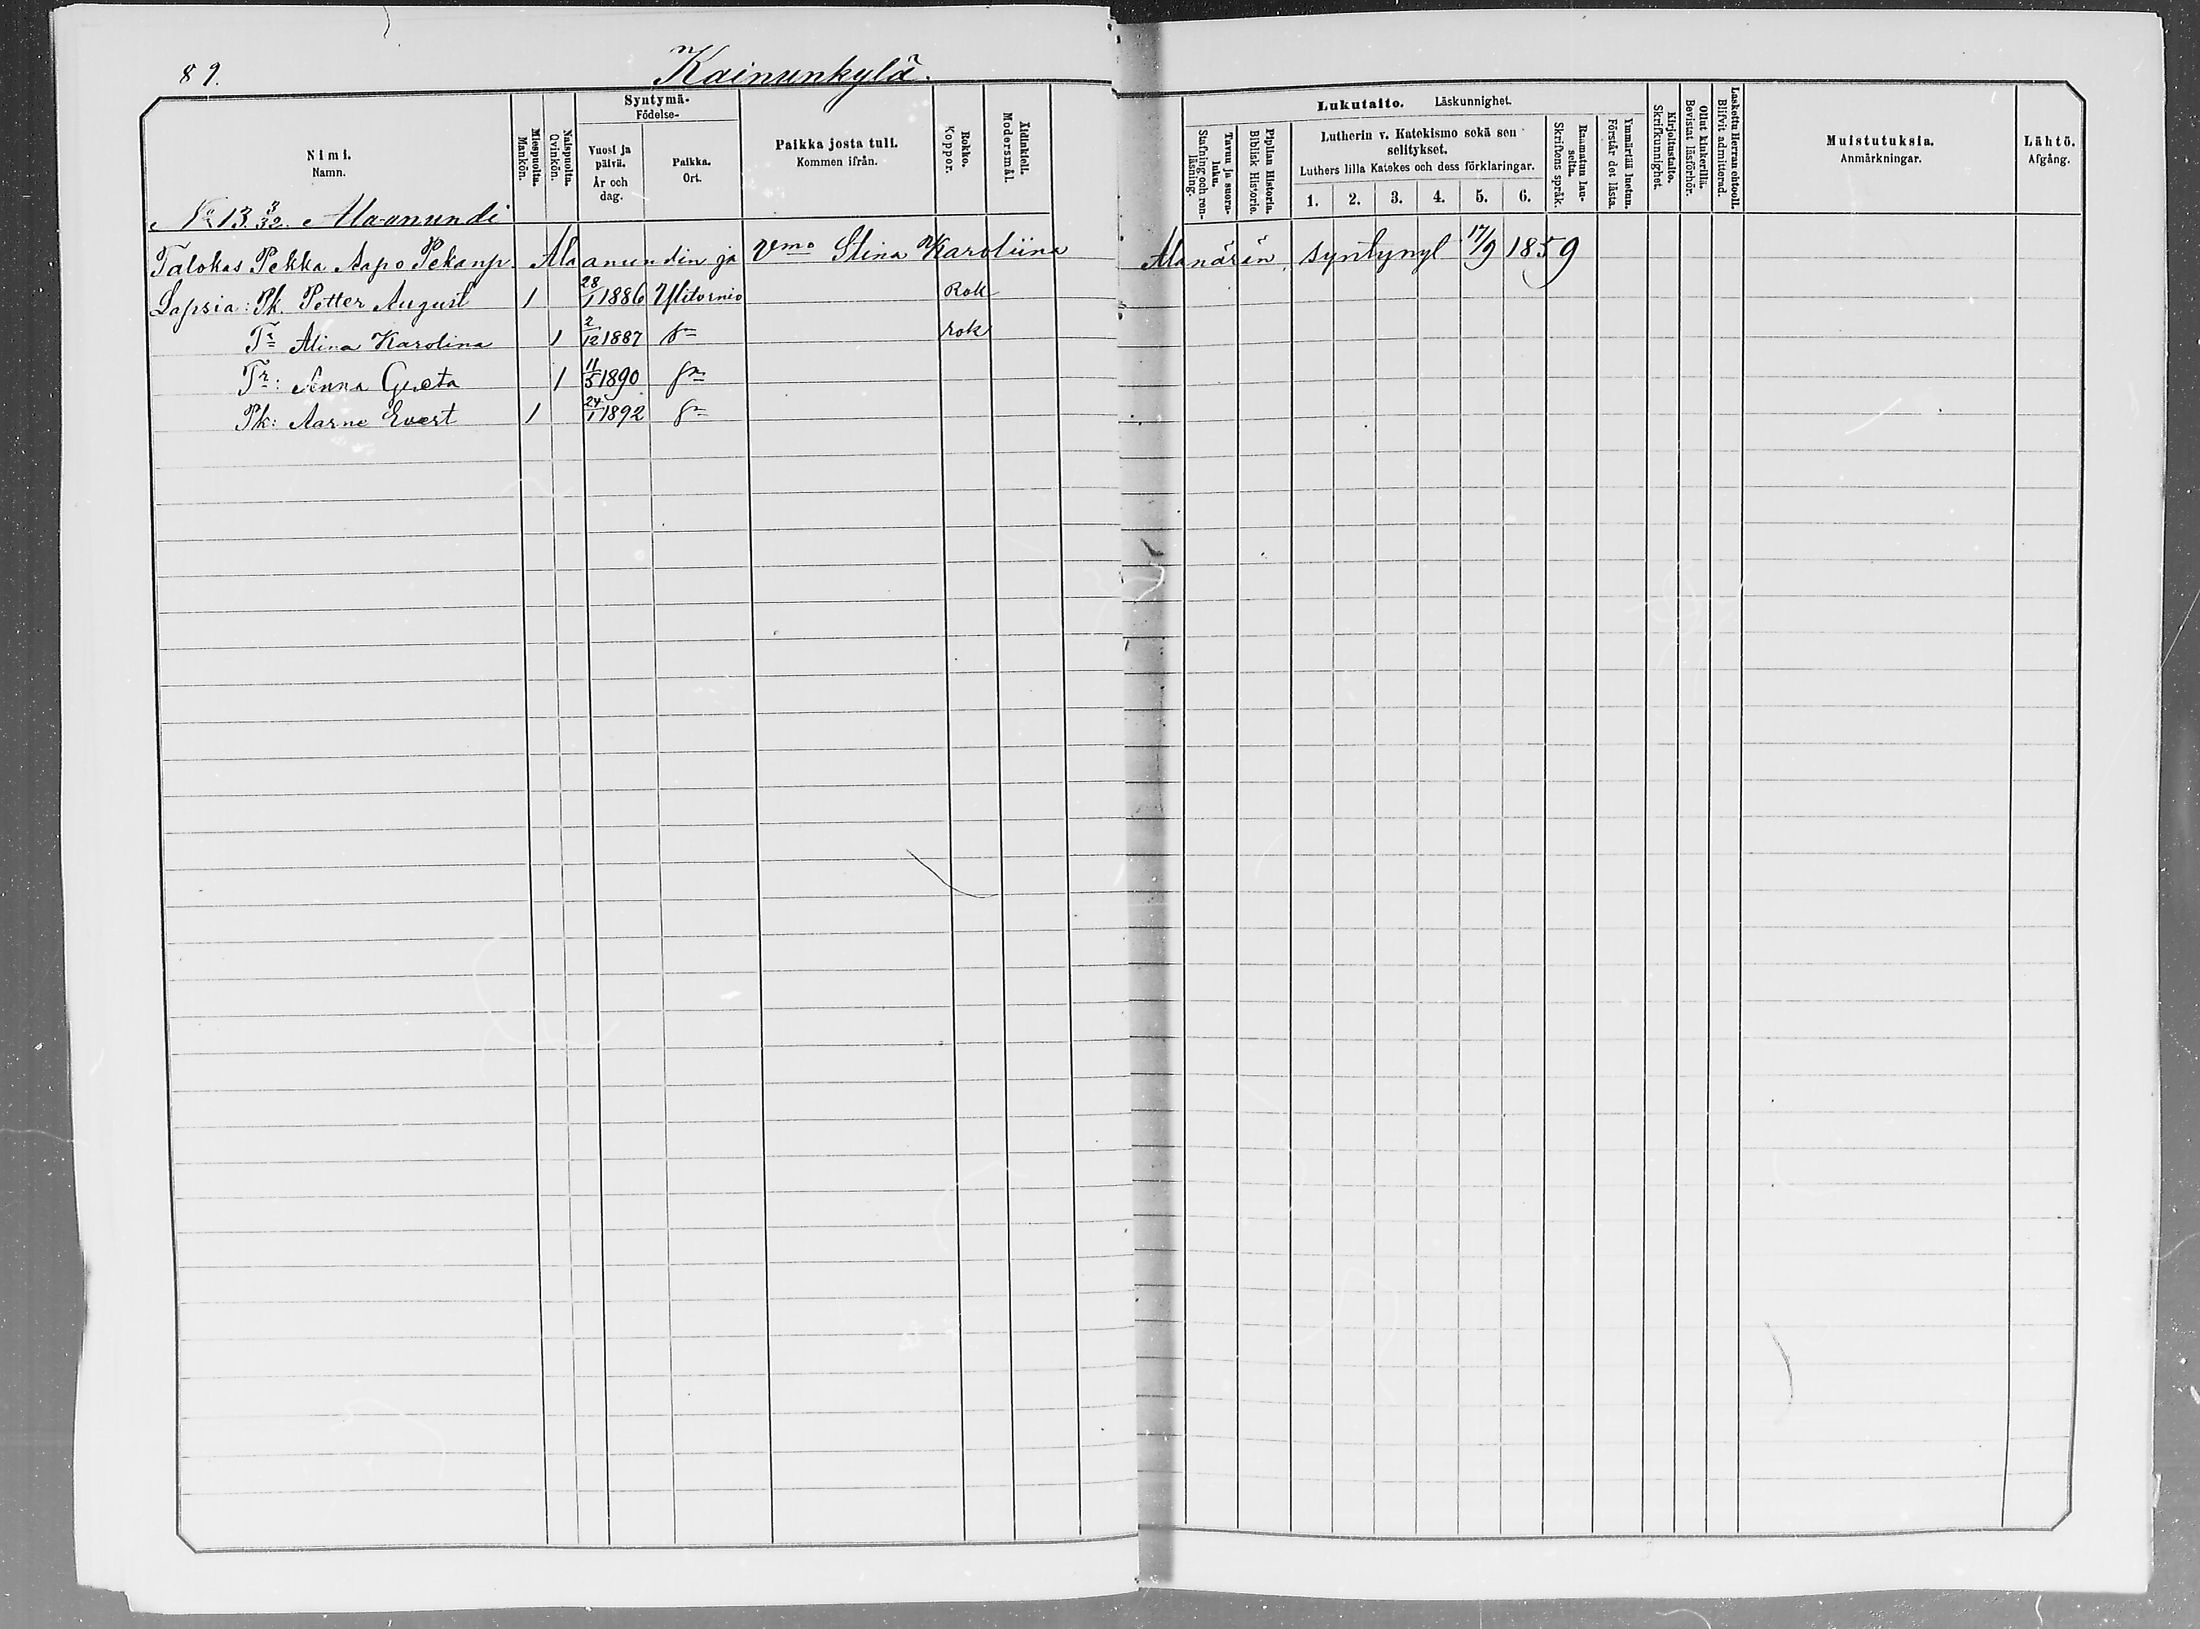 89.
Kainunkylä.
Nimi.
Namn.
Miespuolia.
Mankön.
Naispuolia.
Qvinkön.
Syntymä-
Födelse-
Vuosi ja
päivä.
År och
dag.
Paikka.
Ort.
Paikka josta tuli.
Kommen ifrån.
Rokko.
Koppor.
Äidinkieli.
Modersmål.
Lukutaito. Läskunnighet.
Tavuu ja suora-
luku.
Stafning och ren-
läsning.
Piplian Historia.
Biblisk Historie.
Lutherin v. Katekismo sekä sen
selitykset.
Luthers lilla Katekes och dess förklaringar.
1. 2. 3. 4. 5. 6.
Raamatun lau-
seita.
Skriftens språk.
Ymmärtää luetun.
Förstår det lästa.
Kirjoitustaito.
Skrifkunnighet.
Ollut kinkerillä.
Bevistat läsförhör.
Laskettu Herran ehtooll.
Blifvit admitterad.
Muistutuksia.
Anmärkningar.
Lähtö.
Afgång.
No 13. 3/32. Alaanundi
Talokas Pekka Aapo Pekanp. Alaanundin ja Vmo Stina Karoliina Alanärän, syntynyt 17/9 1859
Lapsia: Pk. Petter August 1 28/1 1886 Ylitornio Rok
Tr Alina Karolina 1 2/12 1887 sn rok
Tr: Anna Greta 1 11/5 1890 sn
Pk: Aarne Evert 1 24/1 1892 sn